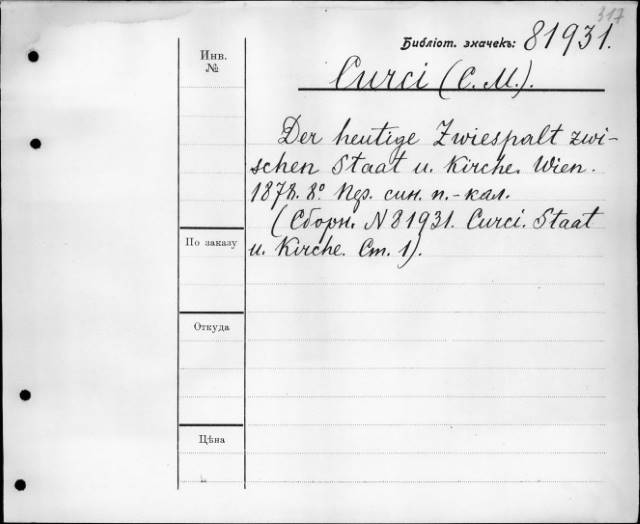 317
Библіот. значекъ: 81931.
Инв.
№
Curci (C. M.).
Der heutige Zwiespalt zwi-
schen Staat u. Kirche. Wien.
1878. 8º. Пер. син. п.-кал.
(Сборн. N 81931. Curci. Staat
u. Kirche. Ст. 1).
По заказу
Откуда
Цѣна